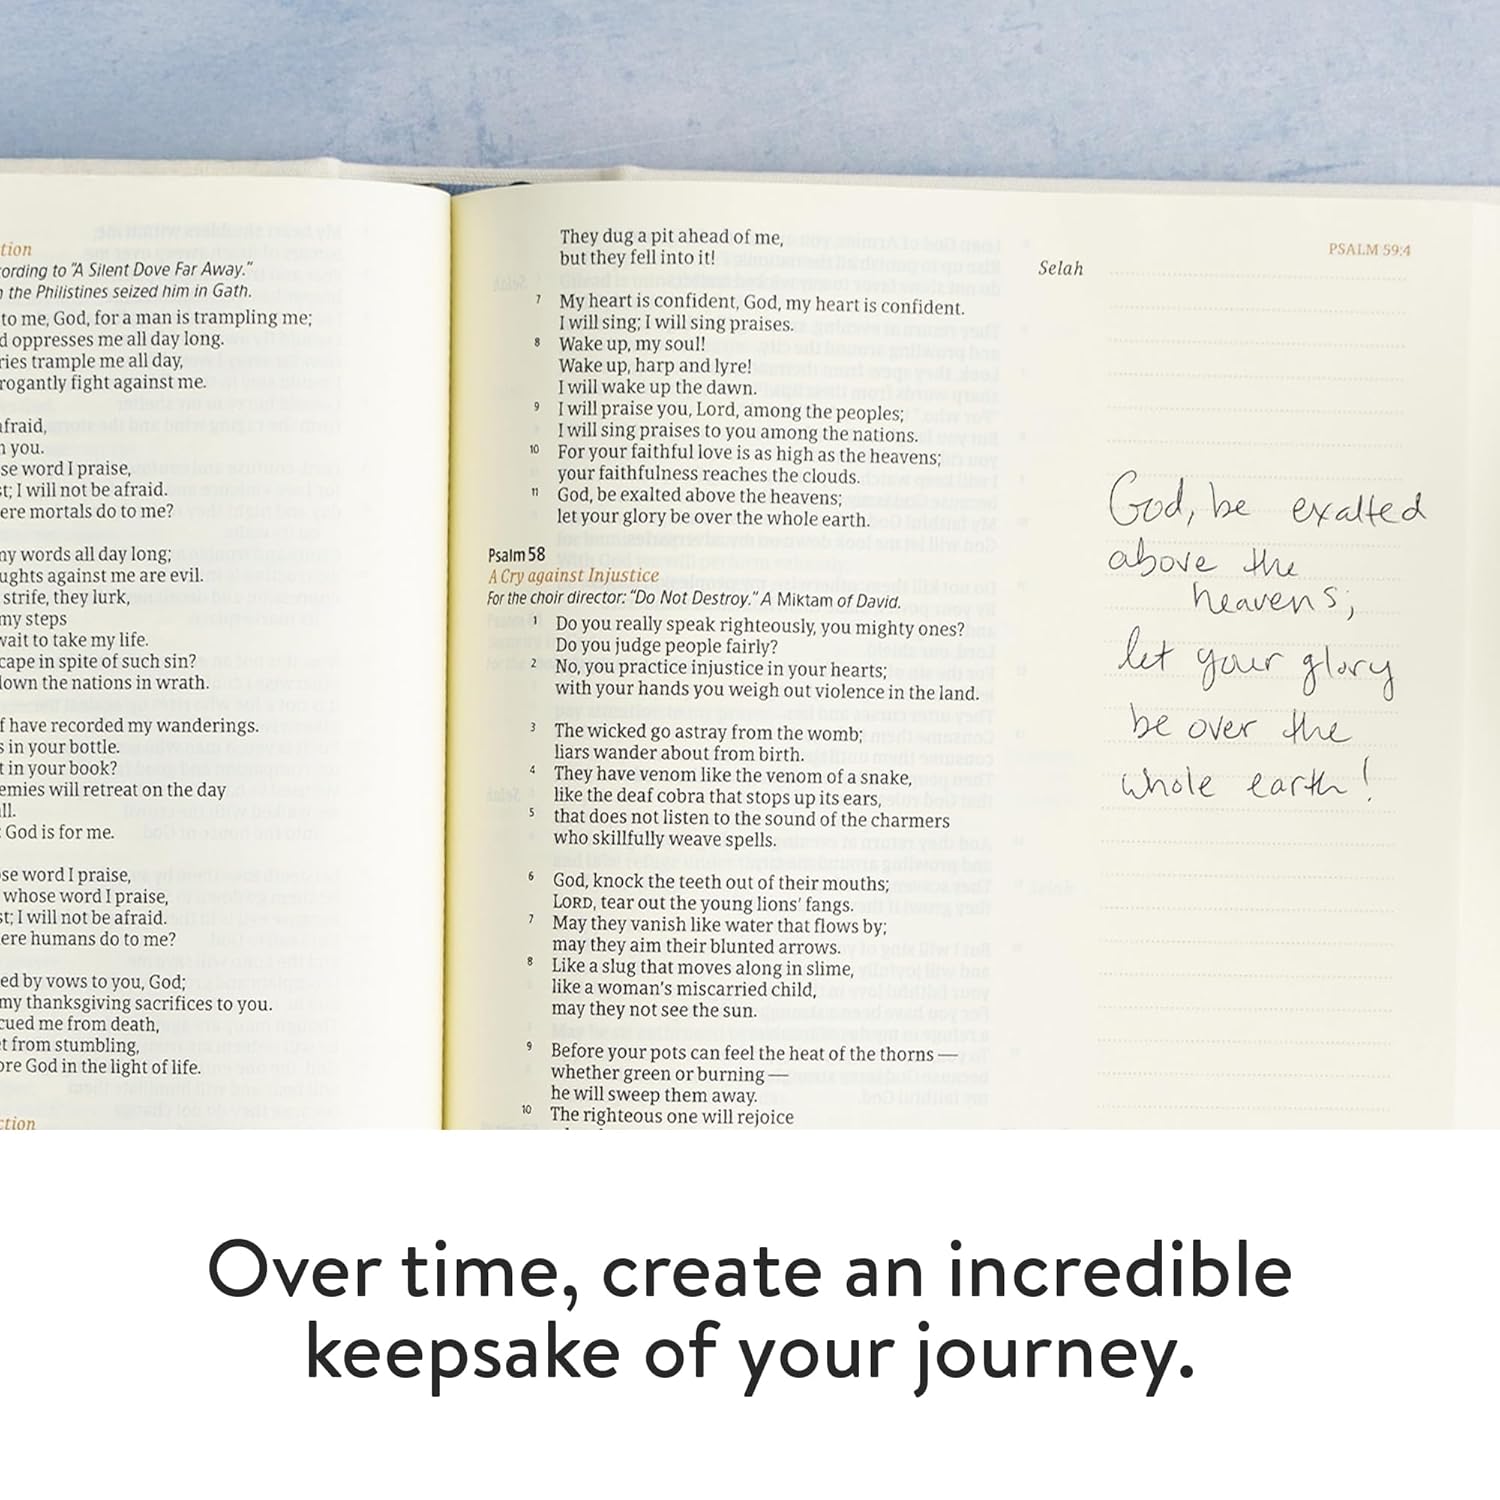 tion
ording to "A Silent Dove Far Away."
the Philistines seized him in Gath.
to me, God, for a man is trampling me;
d oppresses me all day long.
ries trample me all day,
rogantly fight against me.
afraid,
n you.
se word I praise,
st; I will not be afraid.
ere mortals do to me?
my words all day long;
ughts against me are evil.
strife, they lurk,
my steps
wait to take my life.
cape in spite of such sin?
down the nations in wrath.
f have recorded my wanderings.
s in your bottle.
t in your book?
emies will retreat on the day
ll.
God is for me.
se word I praise,
whose word I praise,
st; I will not be afraid.
ere humans do to me?
ed by vows to you, God;
my thanksgiving sacrifices to you.
cued me from death,
t from stumbling,
ore God in the light of life.
ction
They dug a pit ahead of me,
but they fell into it!
Selah
7 My heart is confident, God, my heart is confident.
I will sing; I will sing praises.
8 Wake up, my soul!
Wake up, harp and lyre!
I will wake up the dawn.
9 I will praise you, Lord, among the peoples;
I will sing praises to you among the nations.
10 For your faithful love is as high as the heavens;
your faithfulness reaches the clouds.
11 God, be exalted above the heavens;
let your glory be over the whole earth.
Psalm 58
A Cry against Injustice
For the choir director: "Do Not Destroy." A Miktam of David.
1 Do you really speak righteously, you mighty ones?
Do you judge people fairly?
2 No, you practice injustice in your hearts;
with your hands you weigh out violence in the land.
3 The wicked go astray from the womb;
liars wander about from birth.
4 They have venom like the venom of a snake,
like the deaf cobra that stops up its ears,
5 that does not listen to the sound of the charmers
who skillfully weave spells.
6 God, knock the teeth out of their mouths;
LORD, tear out the young lions' fangs.
7 May they vanish like water that flows by;
may they aim their blunted arrows.
8 Like a slug that moves along in slime,
like a woman's miscarried child,
may they not see the sun.
9 Before your pots can feel the heat of the thorns —
whether green or burning —
he will sweep them away.
10 The righteous one will rejoice
PSALM 59:4
God, be exalted
above the
heavens;
let your glory
be over the
whole earth!
Over time, create an incredible
keepsake of your journey.